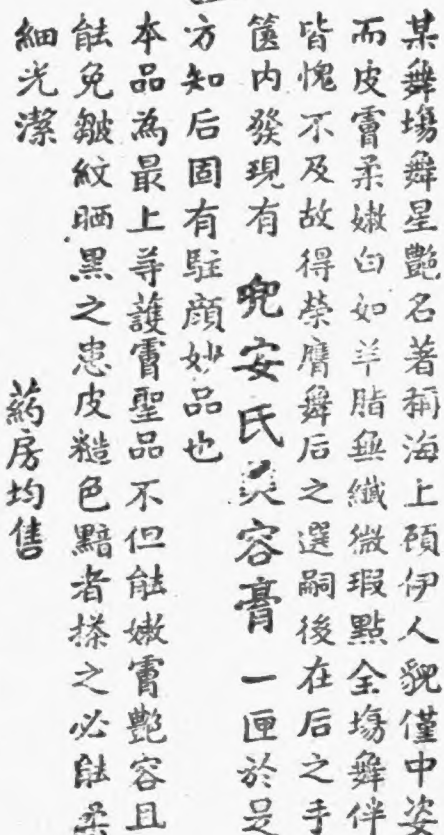 某舞場舞星艷名著稱海上顧伊人貌僅中姿
而皮膚柔嫩白如羊脂無纖微瑕點全場舞伴
皆愧不及故得榮膺舞后之選嗣後在后之手
篋內發現有兜安氏美容膏一匣於是
方知后固有駐顏妙品也
本品為最上等護膚聖品不但能嫩膚艷容且
能免皺紋晒黑之患皮糙色黯者搽之必能柔
細光潔
藥房均售